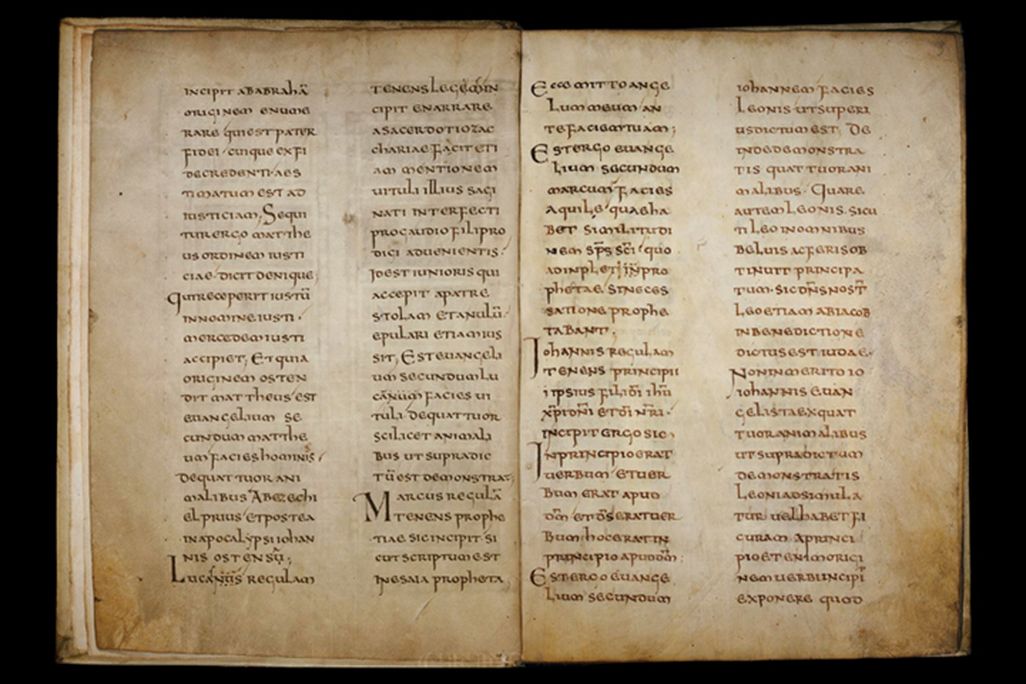 incipit ab abrahā
originem enume
rare qui est pater
fidei cunque ex fi
de credenti aes
timatum est ad
iusticiam; Sequi
tur ergo matthe
us ordinem iusti
ciae dicit denique
qui receperit iustū
in nomine iusti
mercedem iusti
accipiet; Et quia
originem osten
dit mattheus est
euangelium se
cundum matthe
um facies hominis
de quattuor ani
malibus Ab ezechi
el prius et postea
in apocalypsi iohan
nis ostensū;
Lucanus regulam
tenens legem in
cipit enarrare
a sacerdotio zac
chariae facit eti
am mentionem
uituli illius sagi
nati interfecti
pro gaudio fili pro
dici aduenientis
id est iunioris qui
accepit a patre
stolam et anulū
epulari etiam ius
sit; Est euangeli
um secundum lu
canum facies ui
tuli de quattuor
scilicet animali
bus ut supra dic
tū est demonstrat;
Marcus regulā
tenens prophe
tiae sic incipit si
cut scriptum est
in esaia propheta
Ecce mitto ange
lum meum an
te faciem tuam;
Est ergo euange
lium secundum
marcum facies
aquile quae ha
bet similitudi
nem sps sci quo
adinpleti in pro
phetae sine ces
satione prophe
tabant
Johannis regulam
tenens principii
ipsius fili di ihu
xpi dni et di nri
incipit ergo sic
In principio erat
uerbum et uer
bum erat apud
dm et ds erat uer
bum hoc erat in
principio apud dm;
Est ergo euange
lium secundum
iohannem facies
leonis ut superi
us dictum est De
inde demonstra
tis quattuor ani
malibus Quare
autem leonis sicu
ti leo in omnibus
beluis ac feris ob
tinuit principa
tum sic dns nost
leo etiam ab iacob
in benedictione
dictus est iudae
Non inmerito io
iohannis euan
gelista ex quat
tuor animalibus
ut supra dictum
demonstratis
leoni adsimula
tur uel habet fi
curam a principi
pio etenim origi
nem uerbi incipi
exponere quod